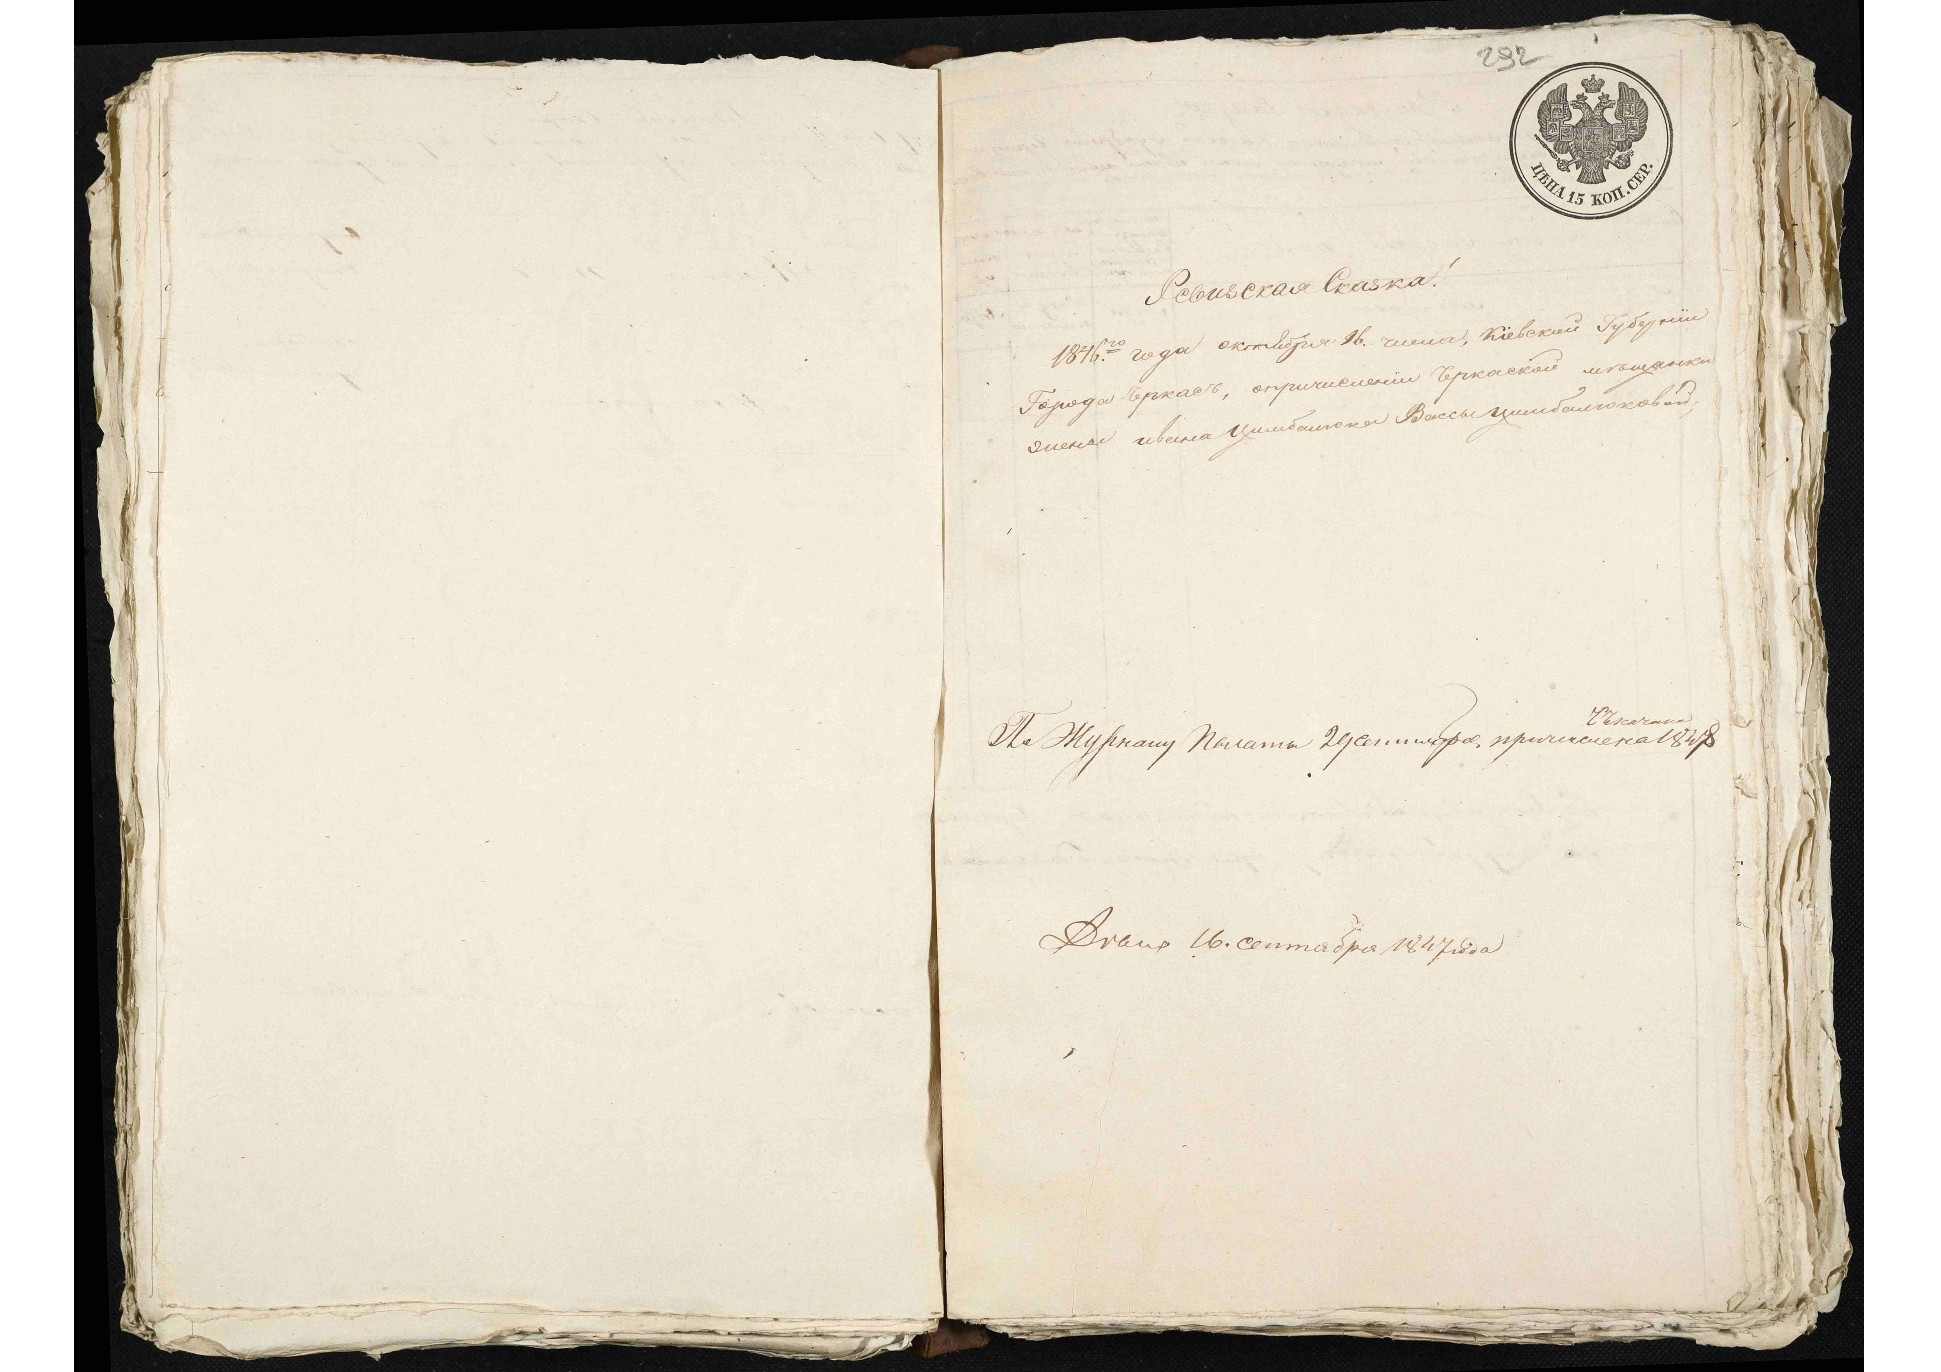 292
ЦѢНА 15 КОП. СЕР.
Ревизская Сказка!
1846.го года октября 16. числа, Кіевской Губерніи
Города Черкасъ, опричисленіи Черкаской мѣщанки
жены ивана Цимбалюка Вассы Цимбалюковой,
По Журналу Палаты 29 сентября, причислена 1848
16. сентября 1847 года